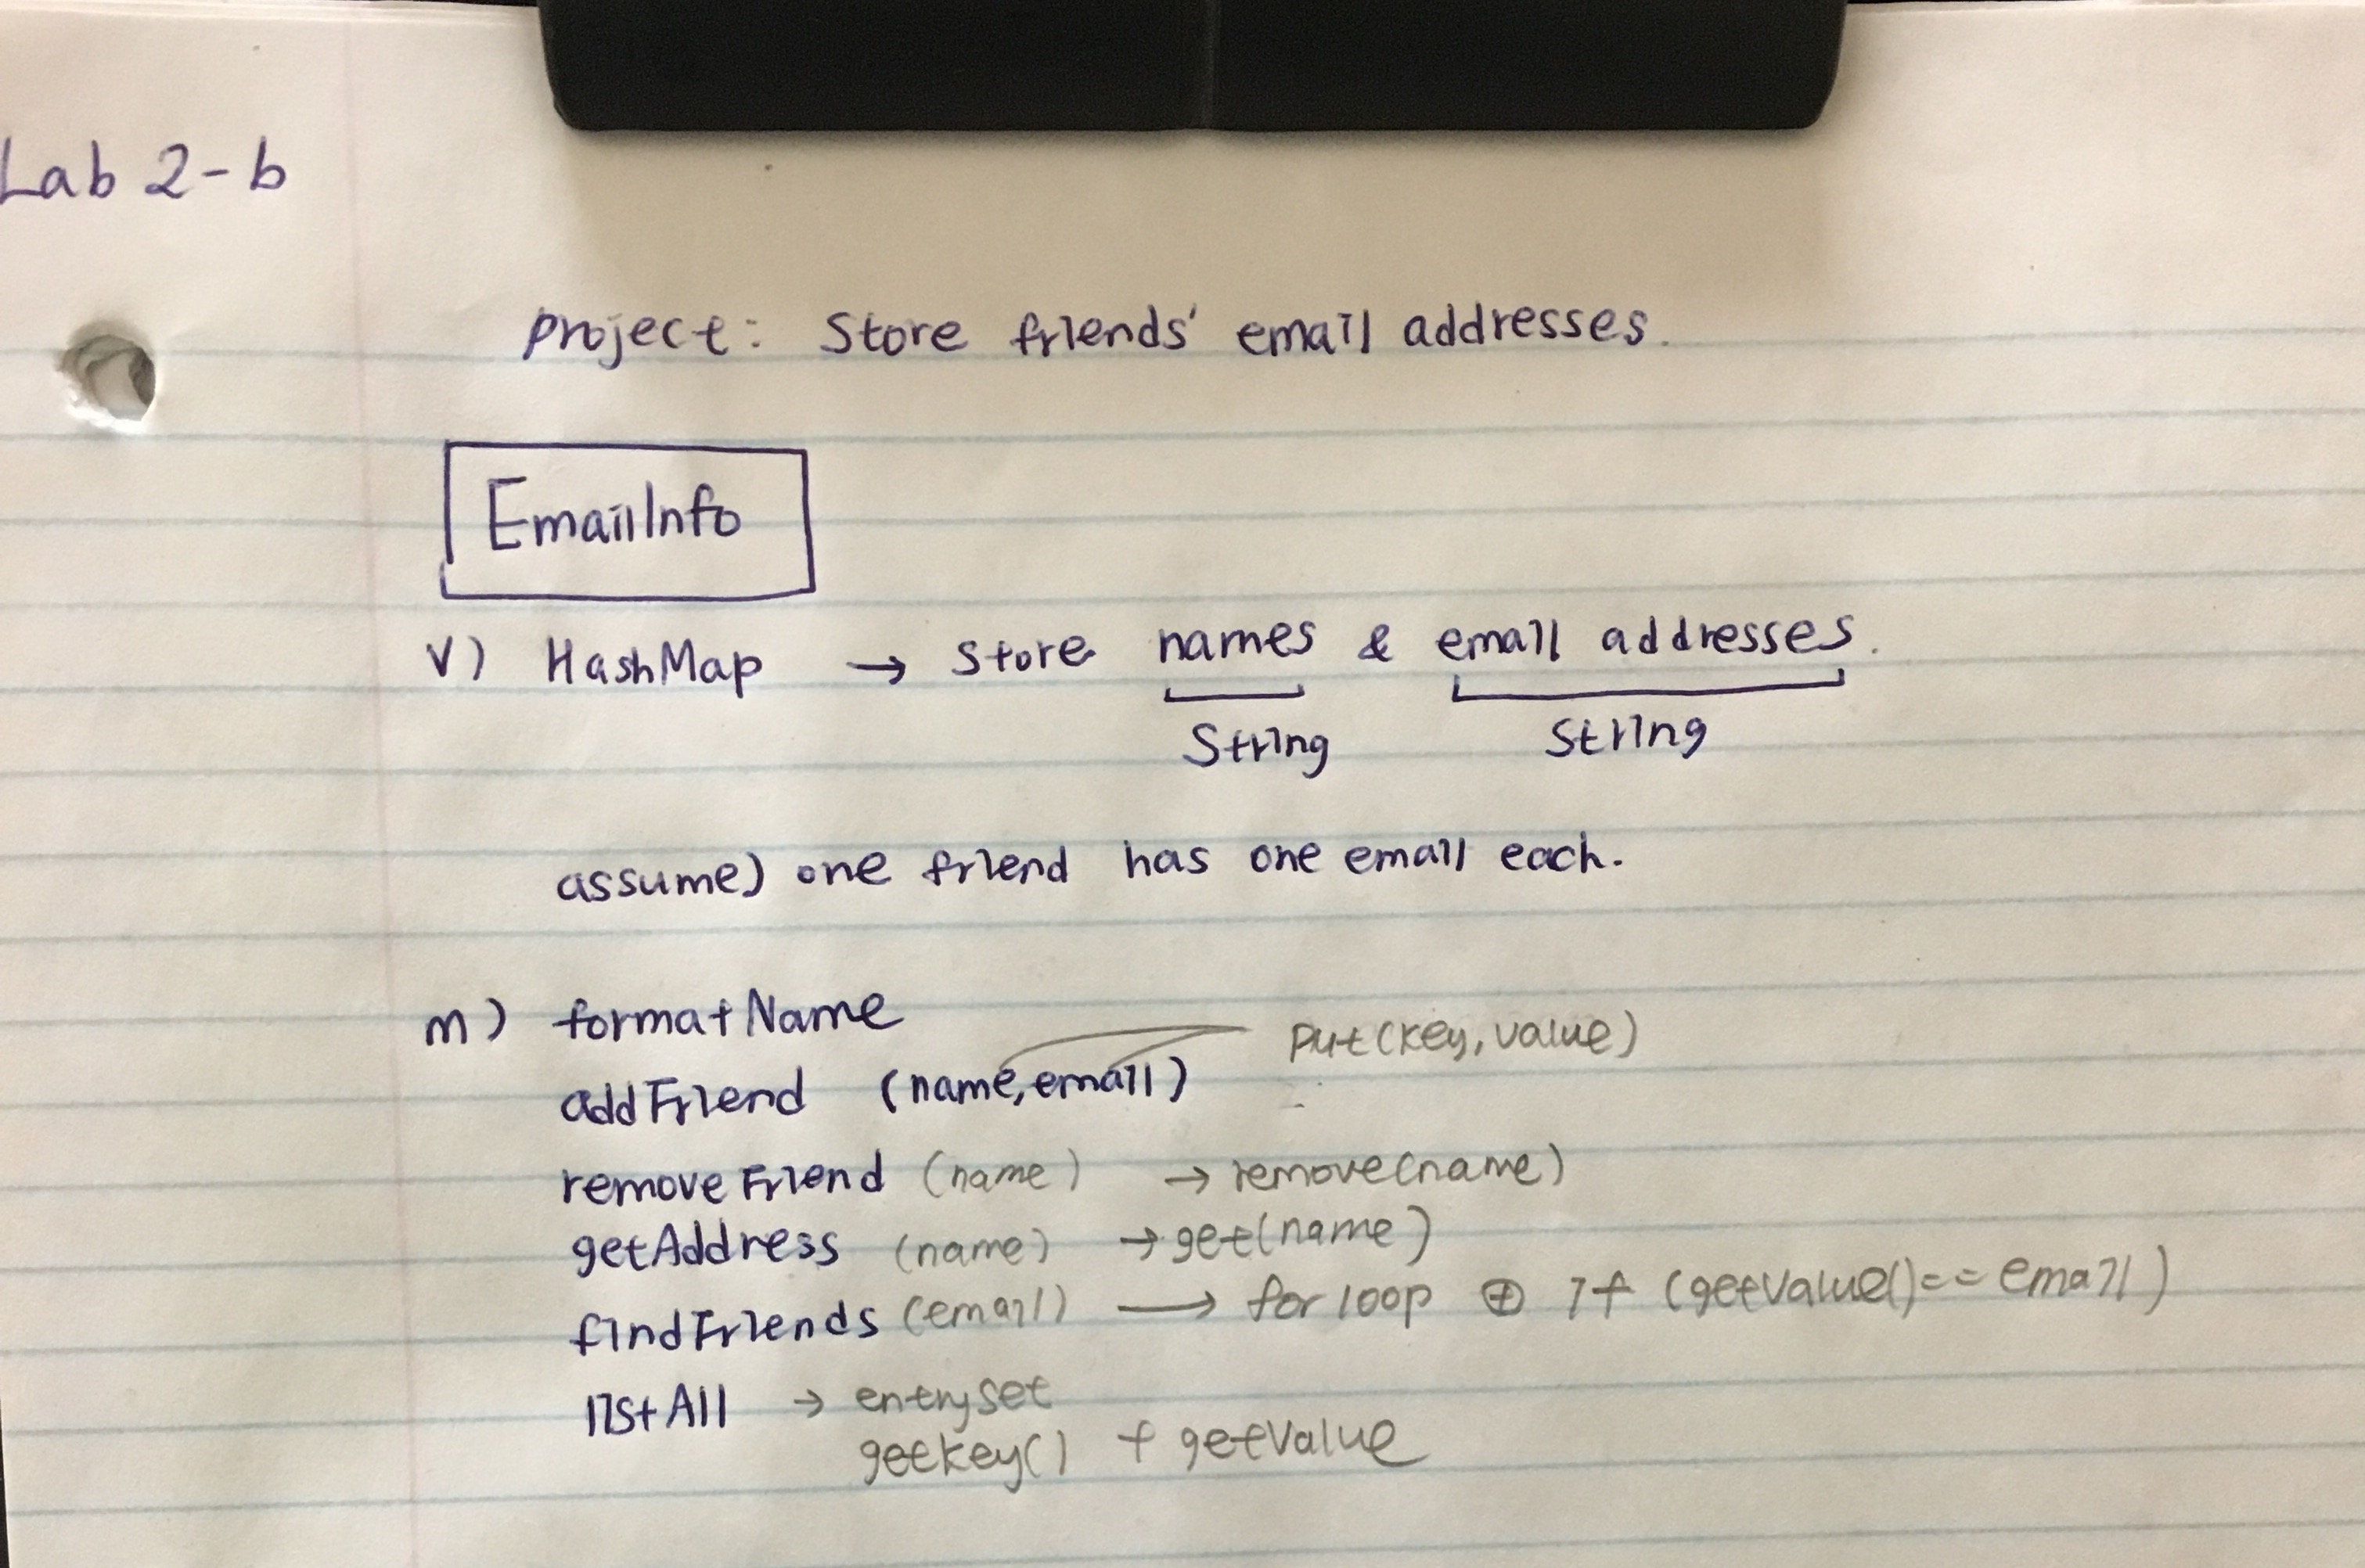 Lab 2-b
project: Store friends' email addresses.
EmailInfo
v) HashMap → store names & email addresses.
String String
assume) one friend has one email each.
m) formatName
addFriend (name, email) put(key, value)
removeFriend (name) → remove(name)
getAddress (name) → get(name)
findFriends (email) → for loop ⊕ if (getValue()== email)
listAll → entrySet
getkey() + getValue